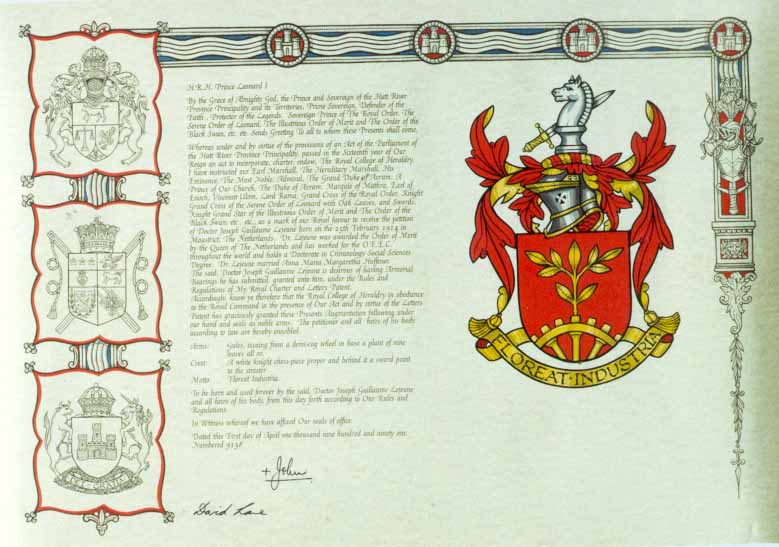 H.R.H. Prince Leonard I
By the Grace of Almighty God, the Prince and Sovereign of the Hutt River
Province Principality and its Territories, Prime Sovereign, Defender of the
Faith, Protector of the Legends. Sovereign Prince of The Royal Order, The
Serene Order of Leonard, The Illustrious Order of Merit and The Order of the
Black Swan, etc. etc. Sends Greeting To all to whom these Presents shall come,
Whereas under and by virtue of the provisions of an Act of the Parliament of
the Hutt River Province Principality passed in the Sixteenth year of Our
Reign an act to incorporate, charter, endow, The Royal College of Heraldry,
I have instructed our Earl Marshall, The Hereditary Marshall, His
Eminence, The Most Noble, Admiral, The Grand Duke of Avram, A
Prince of Our Church, The Duke of Avram, Marquis of Mathra, Earl of
Enoch, Viscount Ulom, Lord Rama, Grand Cross of the Royal Order, Knight
Grand Cross of the Serene Order of Leonard with Oak Leaves, and Swords,
Knight Grand Star of the Illustrious Order of Merit and The Order of the
Black Swan, etc. etc., as a mark of our Royal favour to receive the petition
of Doctor Joseph Guillaume Lejeune born on the 25th February 1924 in
Maastrict, The Netherlands. Dr. Lejeune was awarded the Order of Merit
by the Queen of The Netherlands and has worked for the O.E.E.C.
throughout the world and holds a Doctorate in Criminology Social Sciences
Degree. Dr. Lejeune married Anna Maria Margaretha
The said, Doctor Joseph Guillaume Lejeune is desirous of having Armorial
Bearings he has submitted, granted unto him, under the Rules and
Regulations of My Royal Charter and Letters Patent.
Accordingly, know ye therefore that the Royal College of Heraldry in obedience
to the Royal Command in the presence of Our Act and by virtue of the Letters
Patent has graciously granted these Presents Augmentation following under
our hand and seals as noble arms. The petitioner and all heirs of his body
according to law are hereby ennobled.
Arms: Gules, issuing from a demi-cog wheel in base a plant of nine
leaves all or.
Crest: A white knight chess-piece proper and behind it a sword point
to the sinister
Motto: Floreat Industria.
To be born and used forever by the said, Doctor Joseph Guillaume Lejeune
and all heirs of his body, from this day forth according to Our Rules and
Regulations.
In Witness whereof we have affixed Our seals of office.
Dated this First day of April one thousand nine hundred and ninety one.
Numbered 9138
+ John
David Lane
FLOREAT·INDUSTRIA